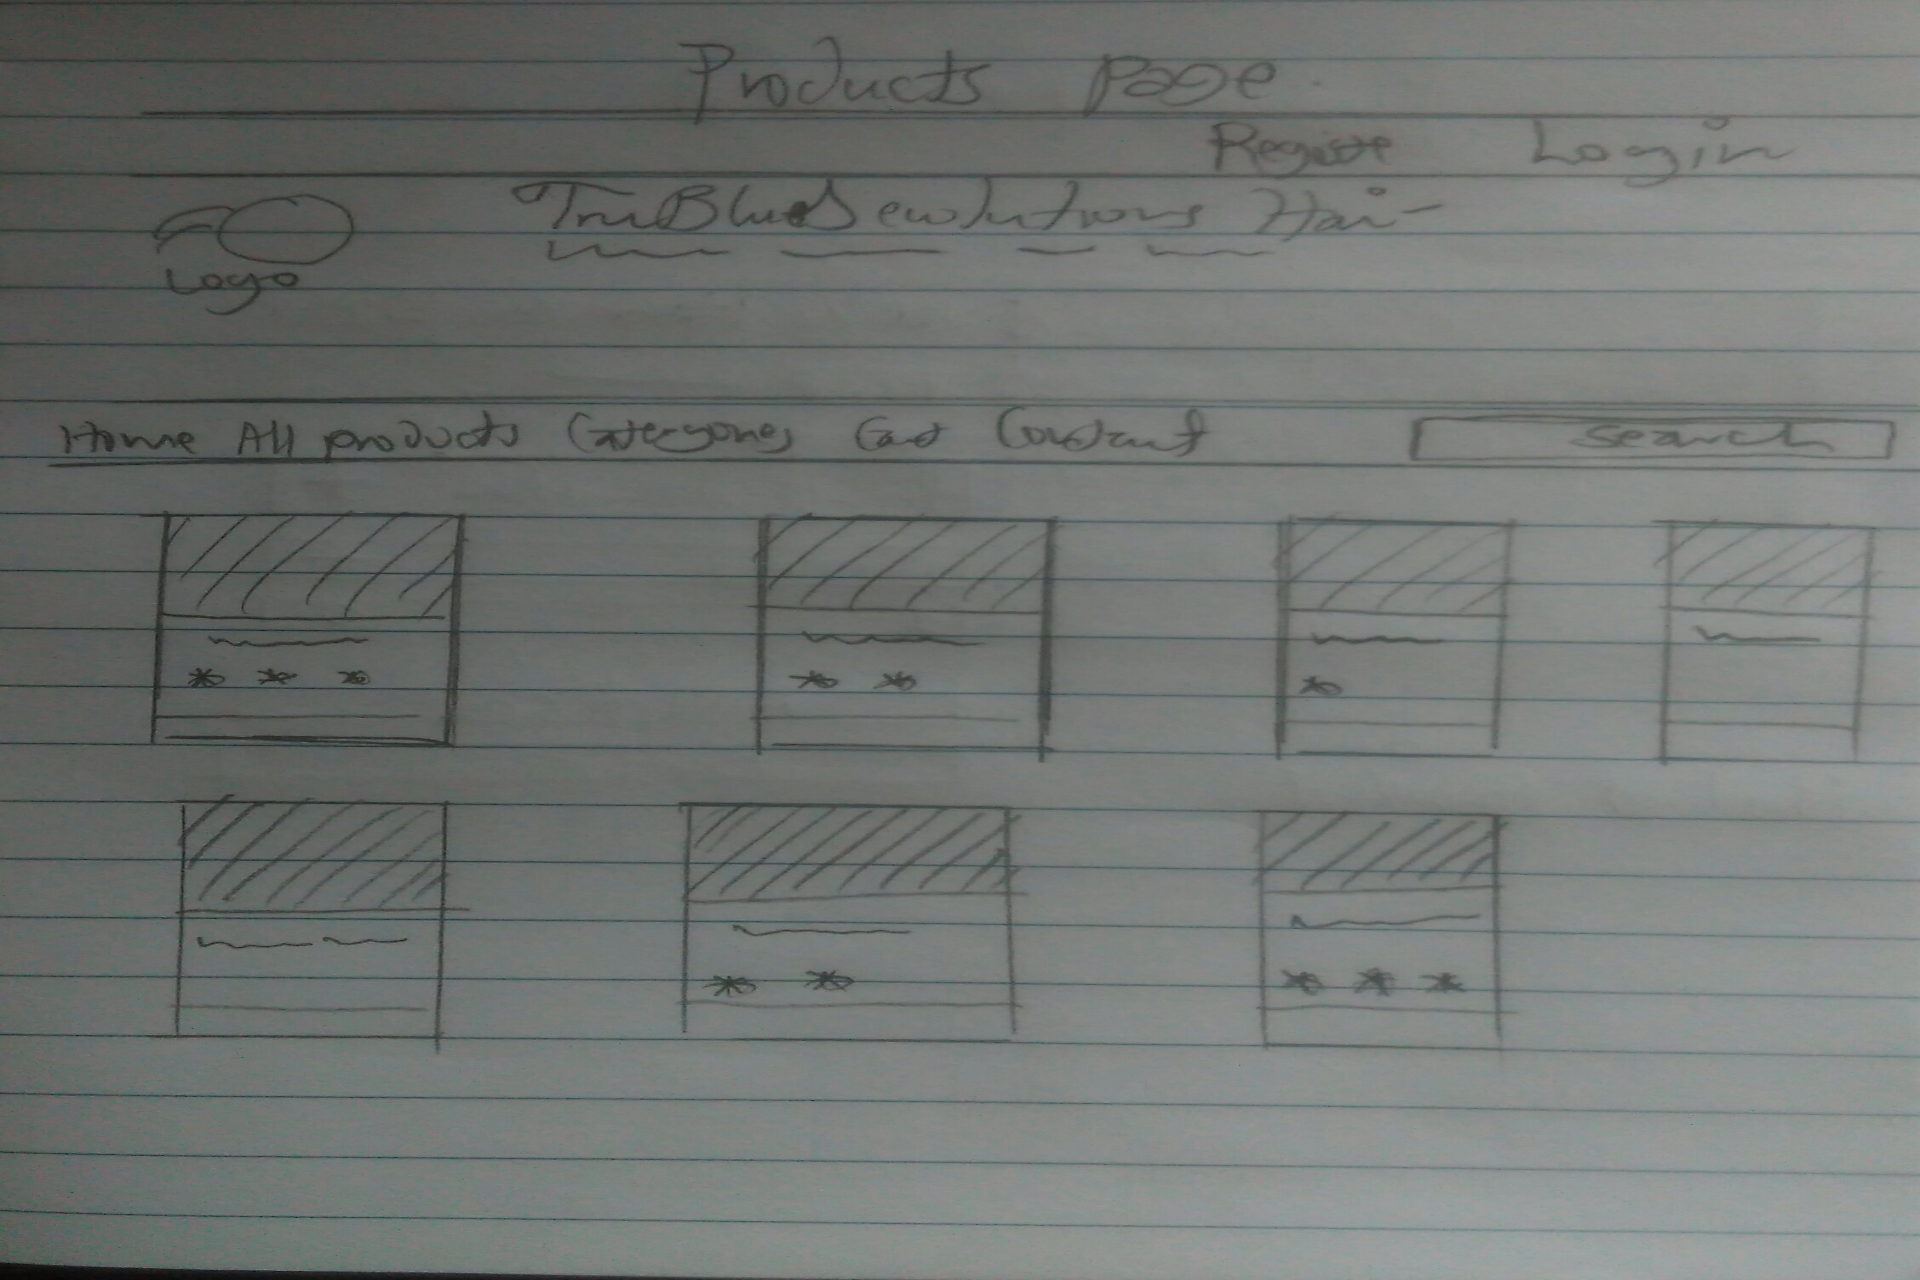 Products Page
Register Login
TruBlueSewlutions Hair
Logo
Home All products Categories Cart Contact
Search